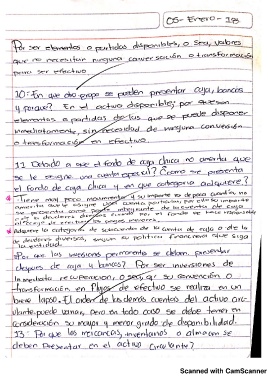 05-Enero-18
Por ser elementos o partidas disponibles, o sea, valores
que no necesitan ninguna conversación o transformación
para ser efectivo
10: En que otro grupo se pueden presentar caja, bancos
y porque? En el activo disponible; por que son
elementos o partidas de las que se puede disponer
inmediatamente, sin necesidad de ninguna conversión
o transformación en efectivo.
11. Debido a que el fondo de caja chica no amerita que
se le asigne una cuenta especial? Como se presenta
el fondo de caja chica y en que categoria adquiere?
Tiene muy poco movimiento y su importe es
Adquiere la categoria de subcuenta de la cuenta de caja o de la
de deudores diversos, según su política financiera que siga
la entidad.
Por que las inversiones permanente se deben presentar
despues de caja y bancos? Por ser inversiones de
inmediata recuperación, o sea, q' su conversión o
transformación en efectivo se realiza en un
breve lapso. El orden de las demás cuentas del activo circ
ulante puede variar, pero en todo caso se debe tomar en
consideración su mayor y menor grado de disponibilidad.
13: Por que las mercancías, inventarios o almacen se
deben presentar en el activo circulante?
Scanned with CamScanner